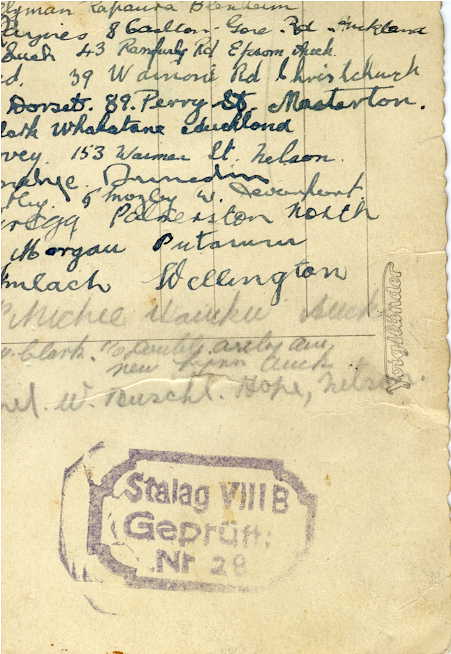 lyman Rapaura Blenheim
8 Carlton Gore Rd. Auckland
43 Ranfurly Rd Epsom Auck.
d. 39 Wainoni Rd Christchurch
Dorset. 89. Perry St. Masterton.
lark Whakatane Auckland
vey. 153 Waimea St. Nelson.
Dunedin
tley. 5 Mozley Av. Devonport.
regg Palmerston North
Morgan Putaruru
mlach Wellington
Michee Waiuku Auck
Clark.
New Lynn Auck
W. Buschl. Hope, Nelson.
Voigtländer
Stalag VIII B
Geprüft:
Nr 28